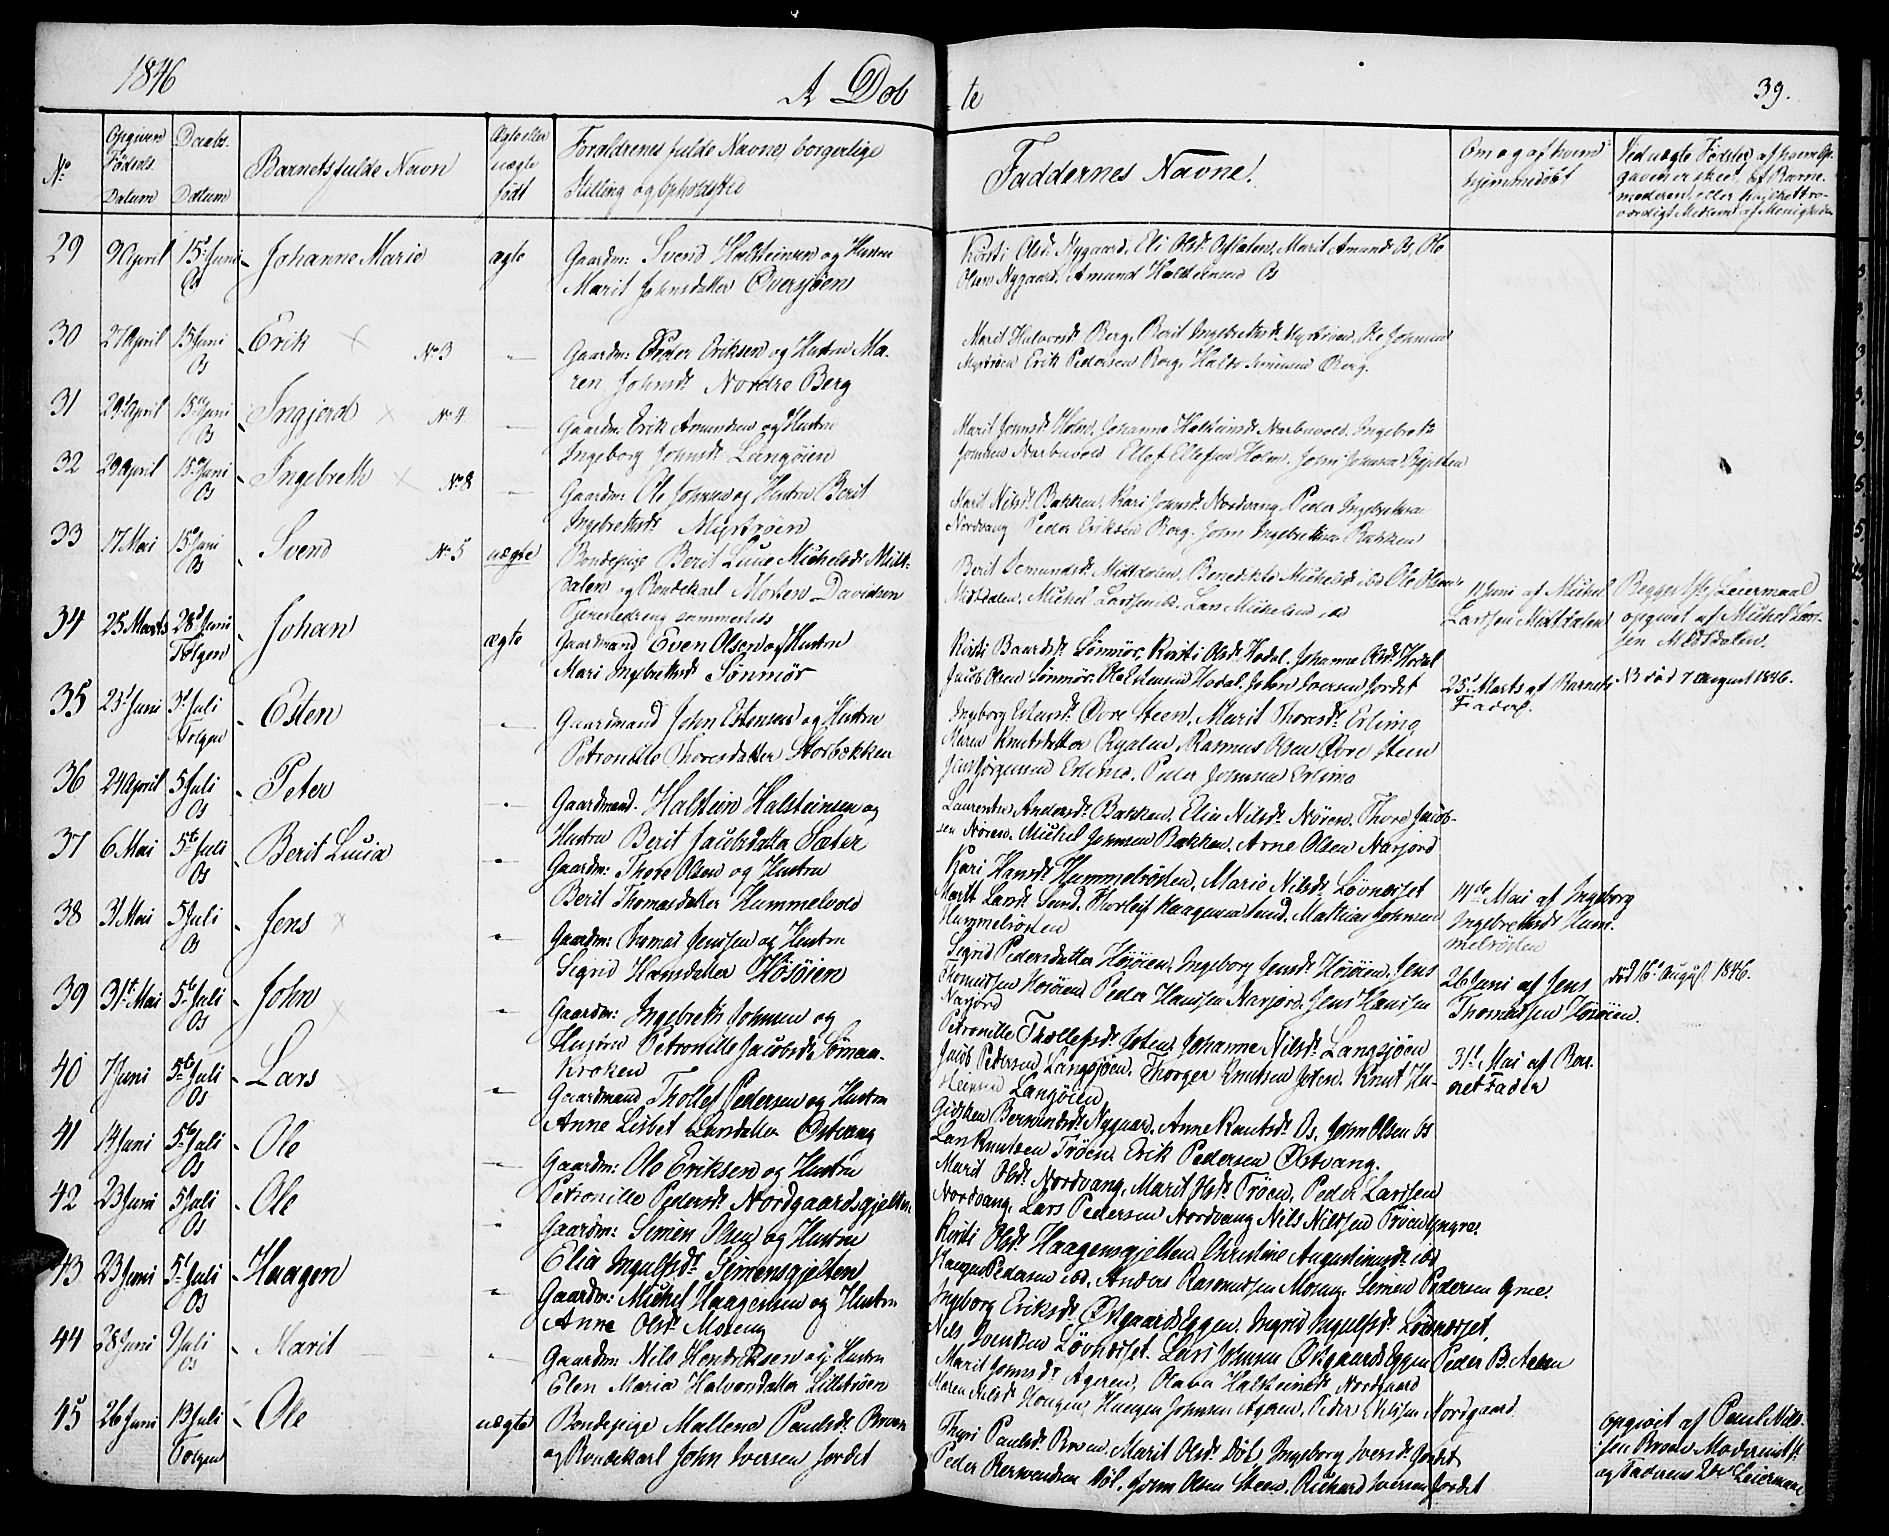 1846
A Døb
te
39.
No
Opgiven Fødsels Datum
Daabs Datum
Barnets fulde Navn
Ægte eller uægte født
Forældrenes fulde Navne, borgerlige
Stilling og Opholdsted
Faddernes Navne.
Om og af hvem
hjemmedøbt
Ved uægte Fødsler af hvem Op-
gaven er skeet, af Barne-
moderen, eller
Medlem af Menigheden
29 9 April 15d Juni Os Johanne Marie ægte Gaardm: Svend Halsteinsen og Hustru
Marit Johnsdatter Oversjøen
Kirsti Olsdr Nygaard, Eli Olsdr, Marit Amunds Os, Ole
Olsen Nygaard, Amund Halsteinsen Os
30 27 April 15 Juni Os Erik No 3 Gaardm: Peder Eriksen og Hustru Ma-
ren Johnsdr Nordre Berg
Marit Halvorsdr Berg, Berit Ingebrethsdr Myrtrøen, Ole Johnsen
Myrtrøen Erik Pedersen Berg, Halvor Simensen Berg.
31 29 April 15 Juni Os Ingjerd No 4. Gaardm: Erik Amundsen og Hustru
Ingeborg Johnsdr Langøien
Marit Johnsdr Holm, Johanne Halsteinsdr Narbuvold, Ingebreth
Johnsen Narbuvold Ellef Ellefsen Holm. John Johnsen
32 29 April 15 Juni Os Ingebreth No 8 Gaardm: Ole Johnsen og Hustru Berit
Ingebrethsdr Myrtrøen
Marit Nilsdr Bakken, Kari Johnsdr Nordvang, Peder Ingebrethsen
Nordvang Peder Eriksen Berg, John Ingebrethsen Bakken
33 17 Mai 15 Juni Os Svend No 5 uægte Bondepige Berit Lucie Michelsdr Midt-
dalen og Bondekarl Morten Davidsen
Tjenestedreng sammesteds
Berit Semundsdr Midtdalen, Benedikte Michelsdr ibd Ole Olsen
Midtdalen, Michel Larssen ib. Lars Michelsen ib
11 Juni af Michel
Larssen Midtdalen
Begges 1ste Leiermaal
opgivet af Michel Lar-
sen Midtdalen.
34 25 Marts 28d Juni Tolgen Johan ægte Gaardmand Even Olsen og Hustru
Mari Ingebrethsdr Sønmør
Kirsti Baardsdr Sønmør, Kirsti Olsdr Hodal, Johanne Olsdr Hodal
Jacob Olsen Sønmør, Ole Estensen Hodal, John Iversen Jordet
25d Marts af Barnets
Fader.
NB død 7 august 1846.
35 23d Juni 3d Juli Tolgen Esten Gaardmand John Estensen og Hustru
Petronille Thoresdatter Storbækken
Ingeborg Erlandsdr Øvre Steen, Marit Thoresdr Erlimo
Maren Knudsdatter Ryalen, Rasmus Olsen Øvre Steen
Jens Jørgensen Erlimo, Peder Johnsen Erlimo
36 24 April 5 Juli Os Peter Gaardmand. Halstein Halsteinsen og
Hustru Berit Jacobsdatter Sæter
Laurentse Andersdr Bakken, Elin Nilsdr Nøren, Thore Jacob-
sen Nøren, Michel Johnsen Bakken, Arne Olsen Narjord
37 6 Mai 5te Juli Os Berit Lucia Gaardm: Thore Olsen og Hustru
Berit Thomasdatter Hummelvold
Kari Hansdr Hummelrøsten, Marie Nilsdr Løvnæset
Marit Larsdr Sund, Thorleif Haagensen Sund, Mathias Johnsen
Hummelrøsten
14de Mai af Ingeborg
Ingebrethsdr Hum-
melrøsten
38 31 Mai 5 Juli Os Jens Gaardm: Thomas Jenssen og Hustru
Sigrid Hansdatter Høsøien
Sigrid Pedersdatter Høsøien, Ingeborg Jensdr Høsøien, Jens
Thomassen Høsøien, Peder Hanssen Narjord, Jens Hanssen
Narjord
26 Juni af Jens
Thomassen Høsøien.
død 16d August 1846.
39 31te Mai 5te Juli Os John Gaardm: Ingebreth Johnsen og
Hustru Petronille Jacobsdr Sømaa-
kroken
Petronille Thollefsdr Joten, Johanne Nilsdr Langsjøen
Jacob Pedersen Langsjøen, Thorger Knutsen Joten, Knut Hal-
steensen Langøien
31te Mai af Bar-
nets Fader
40 7 Juni 5te Juli Os Lars Gaardmand Thollef Pedersen og Hustru
Anne Lisbet Larsdatter Østvang
Gidsken Berntsdr Nygaard, Anne Knutsdr Os, John Olsen Os
Lars Knutsen Trøen, Erik Pedersen Østvang.
41 14 Juni 5te Juli Os Ole Gaardm: Ole Eriksen og Hustru
Petronille Pedersdr Nordgaardsgjelten
Marit Olsdr Nordvang, Marit Olsdr Trøen, Peder Larssen
Nordvang, Lars Pedersen Nordvang Nils Nilssen Trøen Yngre.
42 23 Juni 5 Juli Os Ole Gaardm: Simen Olsen og Hustru
Elia Ingulfsdr Simensgjelten
Kirsti Olsdr Haagensgjelten, Christine Augustinusdr ibd
Haagen Pedersen ibd, Anders Rasmussen Moseng Simen Pedersen Gine.
43 23 Juni 5d Juli Os Haagen Gaardm: Michel Haagensen og Hustru
Anne Olsdr Moseng
Ingeborg Eriksdr Østgaardseggen, Ingrid Ingulfsdr Løvnæset,
Nils Svendsen Løvnæset, Lars Johnsen Østgaardseggen Peder B. Aasen
44 28 Juni 9 Juli Os Marit Gaardm: Nils Hendriksen og Hustru
Elen Maria Halvorsdatter Lilletrøen
Marit Johnsdr Ageren, Olaba Halsteinsdr Nordgaard
Maren Nilsdr Hougen, Haagen Johnsen Agren, Peder Nilsen Nordgaard.
45 26 Juni 13 Juli Tolgen Ole uægte Bondepige Mallene Paulsdr Broen
og Bondekarl John Iversen Jordet
Thyri Paulsdr Broen, Marit Olsdr Døl, Ingeborg Iversdr Jordet
Peder Berntsen Døl, John Olsen Steen, Richard Iversen Jordet
opgivet af Paul Nils-
sen Broen Moderens 1ste
og Faderens 2det Leiermaal